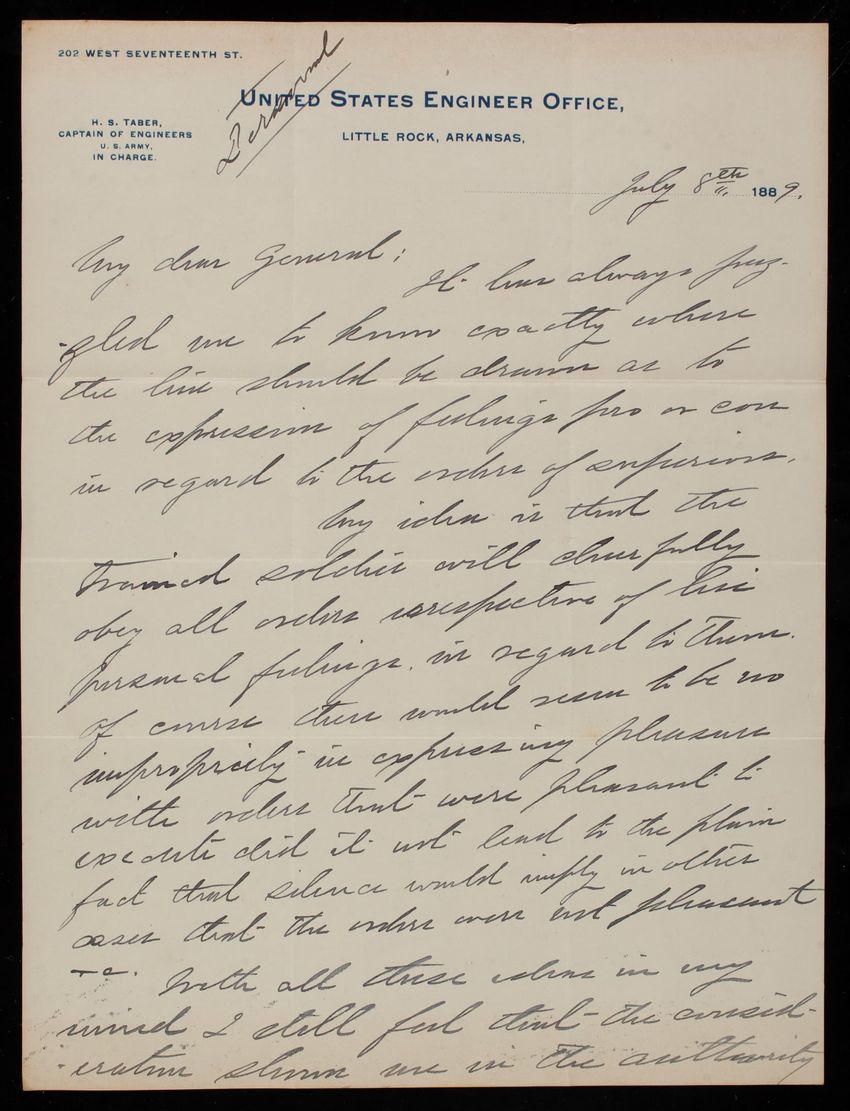 202 WEST SEVENTEENTH ST.
Personal
UNITED STATES ENGINEER OFFICE,
LITTLE ROCK, ARKANSAS,
H. S. TABER,
CAPTAIN OF ENGINEERS
U. S. ARMY,
IN CHARGE.
July 8th 1889.
My dear General;
It has always puz-
-zled me to know exactly where
the line should be drawn as to
the expression of feelings pro or con
in regard to the orders of superiors.
My idea is that the
trained soldier will cheerfully
obey all orders irrespective of his
personal feelings in regard to them.
Of course there would seem to be no
impropriety in expressing pleasure
with orders that were pleasant to
execute did it not lead to the plain
fact that silence would imply in other
cases that the orders were not pleasant
&c.
With all these ideas in my
mind I still feel that the consid-
-eration shown me in the authority